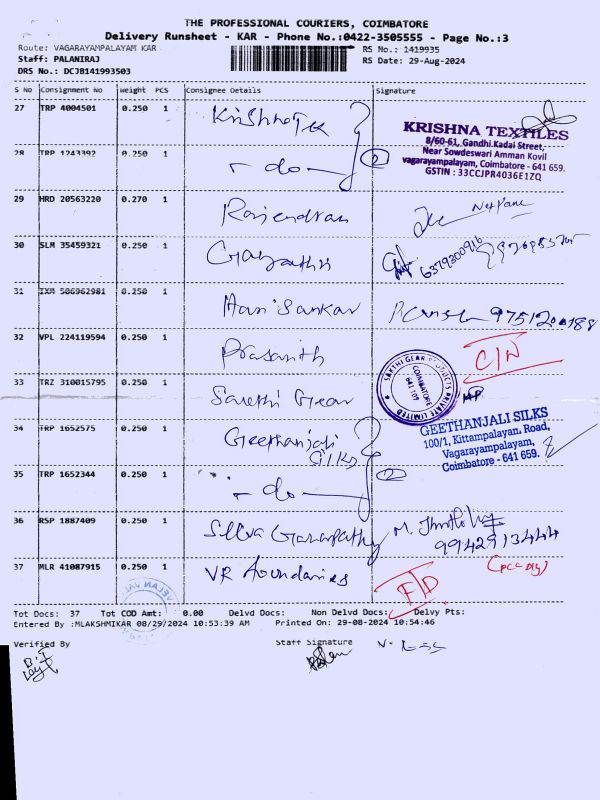 THE PROFESSIONAL COURIERS, COIMBATORE
Delivery Runsheet - KAR - Phone No.:0422-3505555 - Page No.:3
Route: VAGARAYAMPALAYAM KAR RS No.: 1419935
Staff: PALANIRAJ RS Date: 29-Aug-2024
DRS No.: DCJB141993503
S No Consignment No Weight PCS Consignee Details Signature
27 TRP 4004501 0.250 1 Krishna Tex
KRISHNA TEXTILES
8/60-61, Gandhi Kadai Street,
Near Sowdeswari Amman Kovil
vagarayampalayam, Coimbatore - 641 659.
GSTIN : 33CCJPR4036E1ZQ
28 TRP 1243392 0.250 1 - do - 2
29 HRD 20563220 0.270 1 Rajendran
30 SLM 35459321 0.250 1 Gayathri 6379300916
31 IXM 506962981 0.250 1 Hari Sankar 9751200188
32 VPL 224119594 0.250 1 Prasanth C/N
33 TRZ 310015795 0.250 1 Sakthi Gear
SAKTHI GEAR PRODUCTS PRIVATE LIMITED
COIMBATORE
641 107
34 TRP 1652575 0.250 1 Geethanjali Silks
GEETHANJALI SILKS
100/1, Kittampalayan, Road,
Vagarayampalayam,
Coimbatore - 641 659.
35 TRP 1652344 0.250 1 - do - 2
36 RSP 1887409 0.250 1 Selva Ganapathy M. 9942913444
37 MLR 41087915 0.250 1 VR Foundaries F/D
Tot Docs: 37 Tot COD Amt: 0.00 Delvd Docs: Non Delvd Docs: Delvy Pts:
Entered By :MLAKSHMIKAR 08/29/2024 10:53:39 AM Printed On: 29-08-2024 10:54:46
Verified By Staff Signature